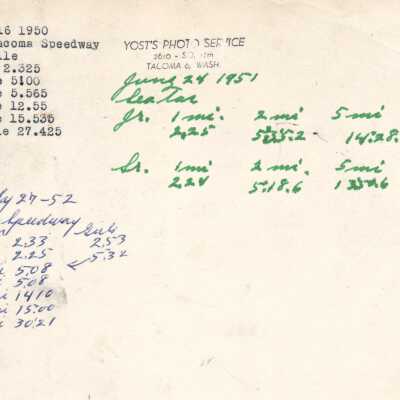 16 1950
acoma Speedway
le
2.325
e 5:00
e 5.565
e 12.55
e 15.535
le 27.425
YOST'S PHOTO SERVICE
TACOMA 6, WASH.
June 24 1951
SeaTac
Jr. 1 mi. 2 mi 5 mi
2.25 14:28.
Sr. 1 mi 2 mi. 5 mi
2.24 5:18.6
ly 27-52
Speedway
Girls
2.33 2.53
2.25 5.32
i 5.08
i 5.08
i 14.10
i 15.00
i 30.21